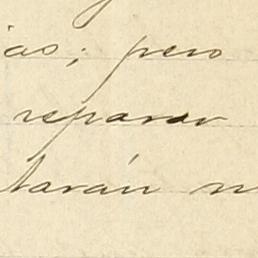 ias; pero
reparar
tarán n